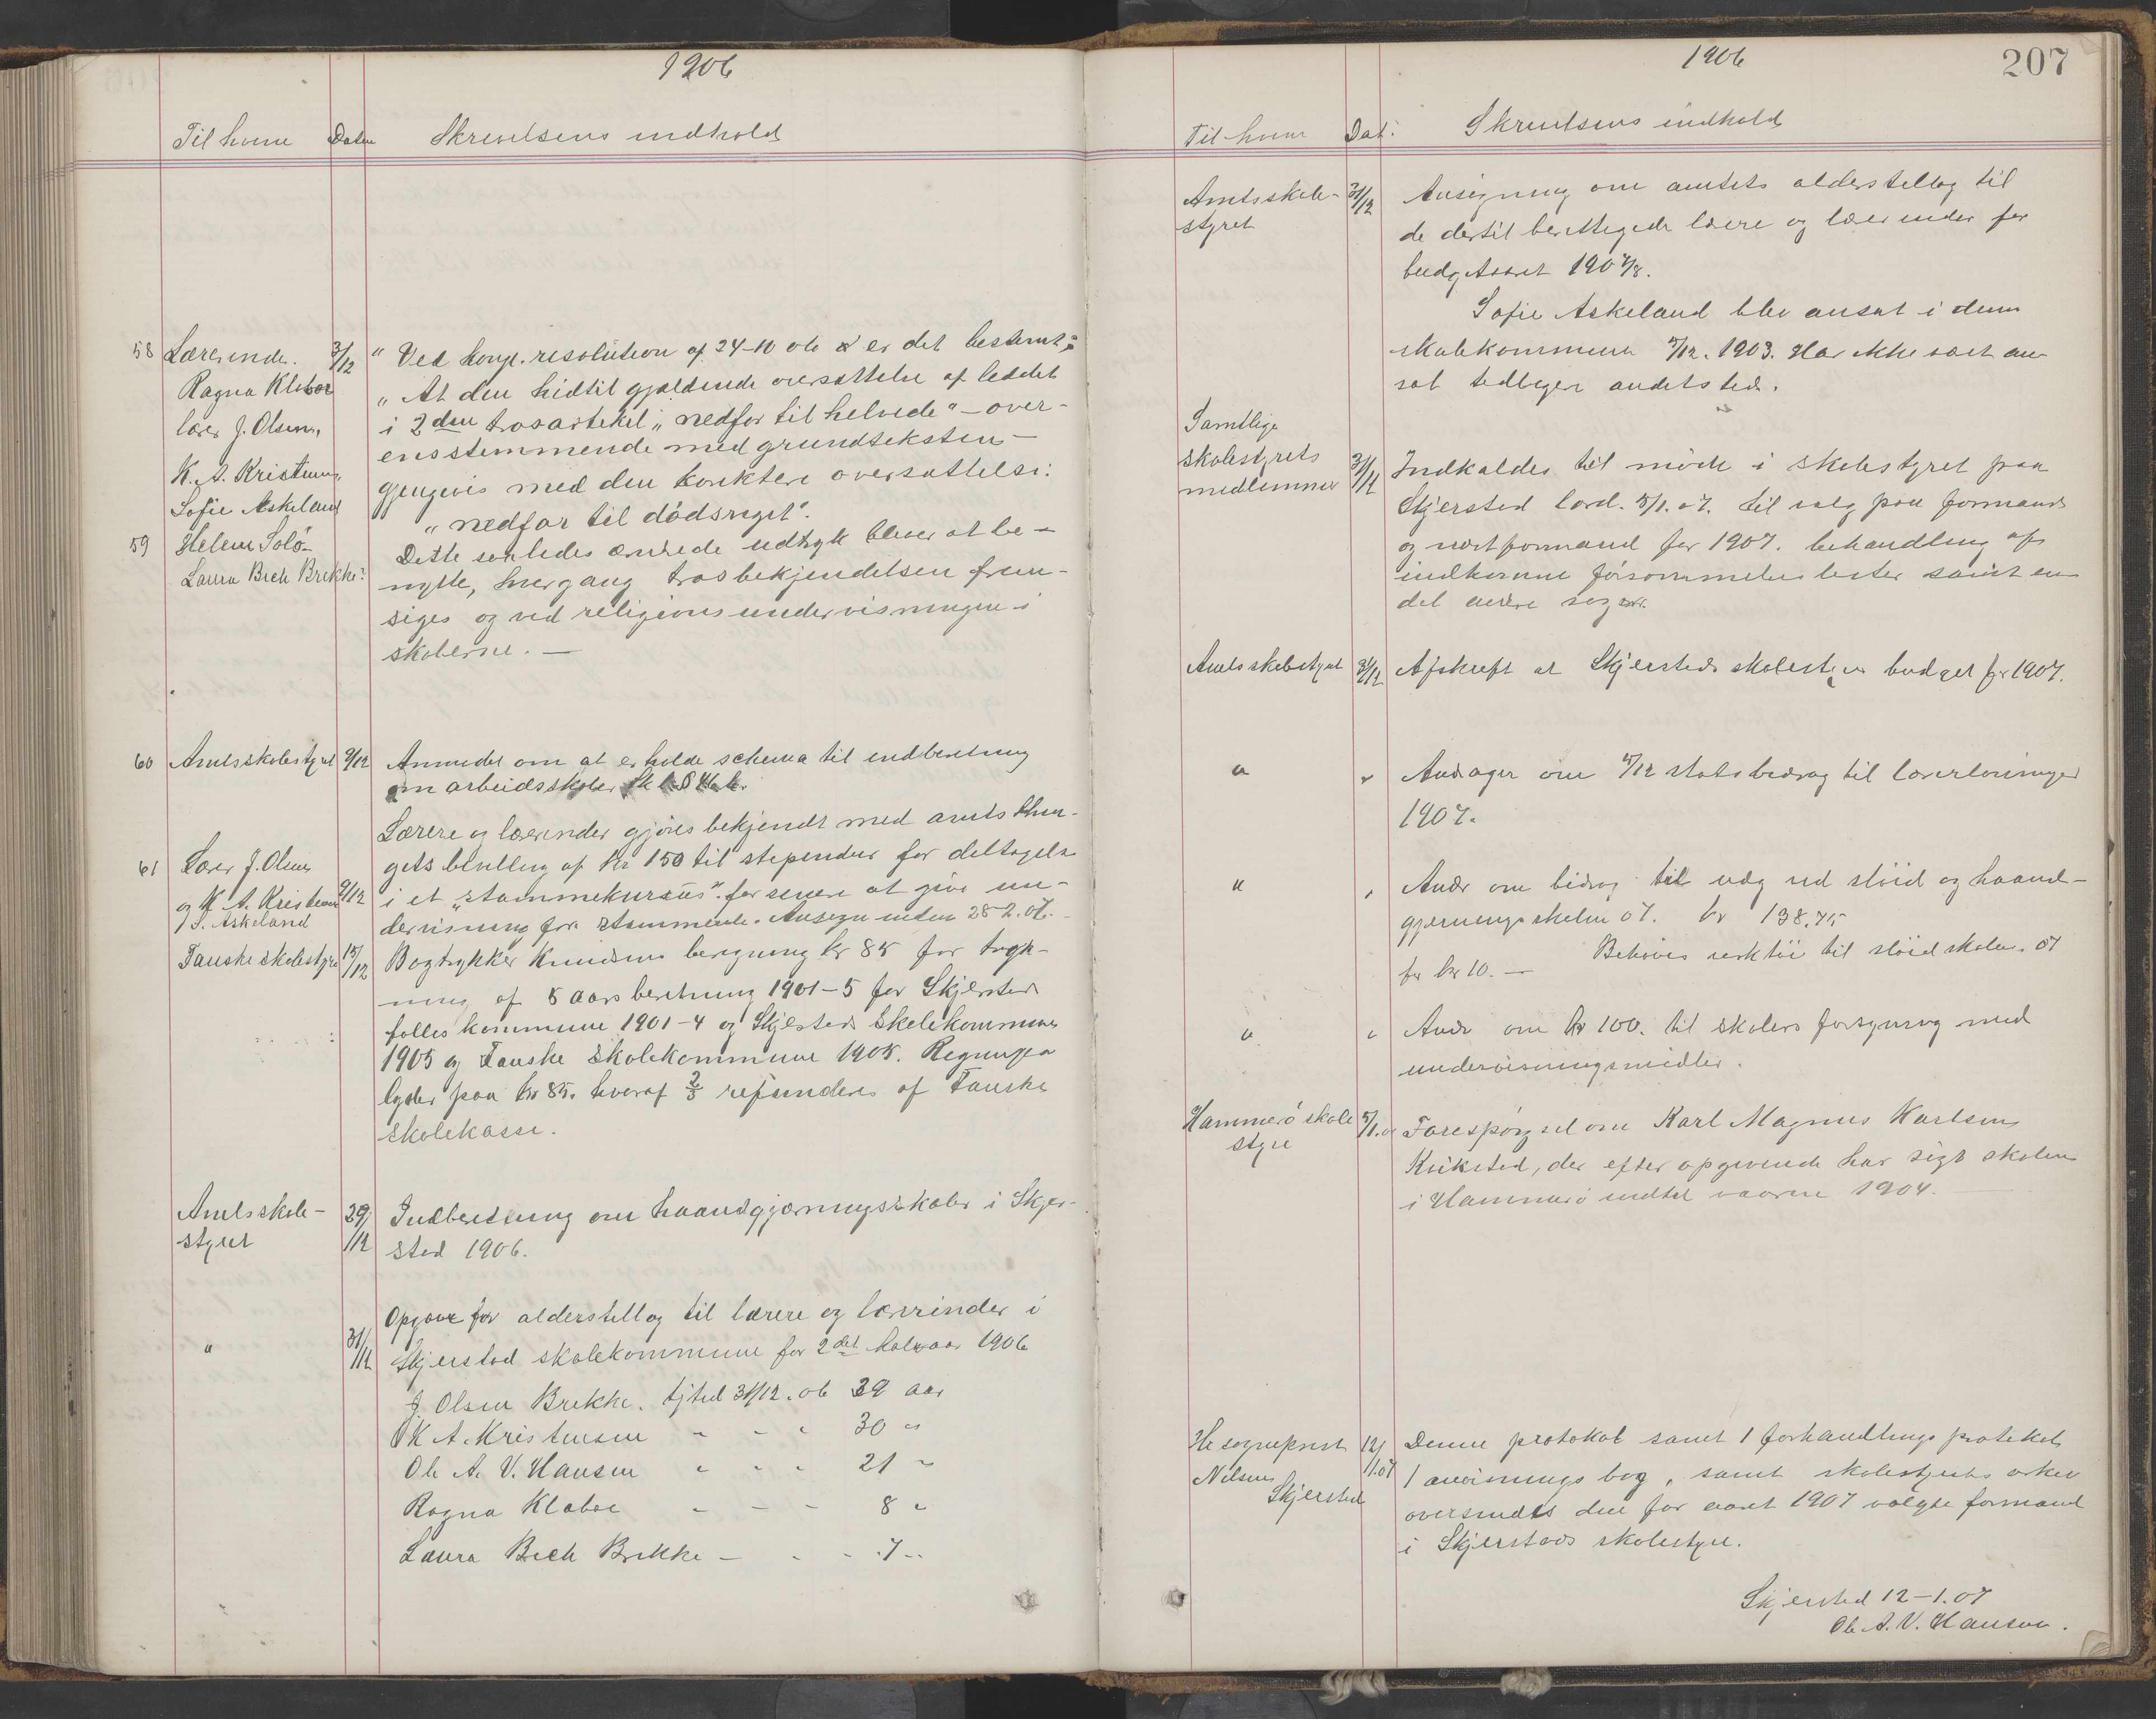 1906
Til hvem Datum Skrivelsens indhold
58 Lærerinde. 3/12 " Ved kongl. resolution af 24-10 06 er det bestemt:
Ragna Klæboe „ At den hidtil gjældende oversættelse af leddet
lærer J. Olsen, i 2den trosartikel „ nedfor til helvede" – over-
K. A. Kristensen ensstemmende med grundteksten –
Sofie Askeland gjengives med den korrektere oversættelse:
59 Helene Solö „ nedfor til dödsriget".
Laura Bech Brekke: Dette saaledes ændrede udtryk bliver at be-
nytte, hver gang trosbekjendelsen frem-
siges og ved religionsundervisningen i
skolerne. —
60 Amtsskolestyret 9/12 Anmodet om at erholde schema til indberetning
om arbeidsskoler
Lærere og lærerinder gjöres bekjendt med amtsthin-
61 Lærer J. Olsen gets bevilling af kr 150 til stipendier for deltagelse
og K. A. Kristensen 9/12 i et „stammekursus" for senere at give un-
S. Askeland dervisning for stammende. Ansögn. inden 28-2.07.
Fauske skolestyre 15/12 Bogtrykker Knudsens beregning kr 85 for tryk-
ning af 5 aarsberetning 1901–5 for Skjerstad
fælleskommune 1901–4 og Skjerstad skolekommune
1905 og Fauske skolekommune 1905. Regningen
lyder paa kr 85. hvoraf 2/3 refunderes af Fauske
skolekasse.
Amtsskole- 29/12 Indberetning om haandgjerningsskoler i Skjer-
styret stad 1906.
Opgave for alderstillæg til lærere og lærerinder i
" 31/12 Skjerstad skolekommune for 2det halvaar 1906
J. Olsen Brekke. tj.tid 31/12. 06 39 aar
K A Kristensen " " " 30 "
Ole A. V. Hansen " " " 21 "
Ragna Klæboe " " " 8 "
Laura Bech Brekke – " " 7 "
1906
207
Til hvem Dat: Skrivelsens indhold
Amtsskole- 31/12 Ansögning om amtets alderstillæg til
styret de dertil berettigede lærere og lærerinder for
budgetaaret 1907/8.
Sofie Askeland blev ansat i denne
skolekommune 1/12. 1903. Har ikke været an-
sat tidligere andetsted.
Samtlige
skolestyrets 31/12 Indkaldes til möde i skolestyret paa
medlemmer Skjerstad lörd. 5/1. 07. til valg paa formand
og næstformand for 1907. behandling af
indkomne forsömmelseslister samt en
del andre sager.
Amtsskolestyret 31/12 Afskrift af Skjerstad skolestyres budget for 1907.
" " Andrager om statsbidrag til lærerlönninger
1907.
" " Andr om bidrag til udg ved slöid og haand-
gjerningsskolen 07. kr 138,75
Behöves verktöi til slöidskolen. 07
for kr 10. —
" " Andr om kr 100. til skolers forsyning med
undervisningsmidler.
Hammerö skole 5/1.07 Forespörgsel om Karl Magnus Karlsen
styre , der efter opgivende har sögt skolen
i Hammerö indtil vaaren 1904.
Hr sogneprest 12/1.07 Denne protokol samt 1 forhandlings protokol
Nilsen 1 anvisnings bog, samt skolestyrets arkiv
Skjerstad oversendes den for aaret 1907 valgte formand
i Skjerstads skolestyre.
Skjerstad 12–1.07
Ole A. V. Hansen.